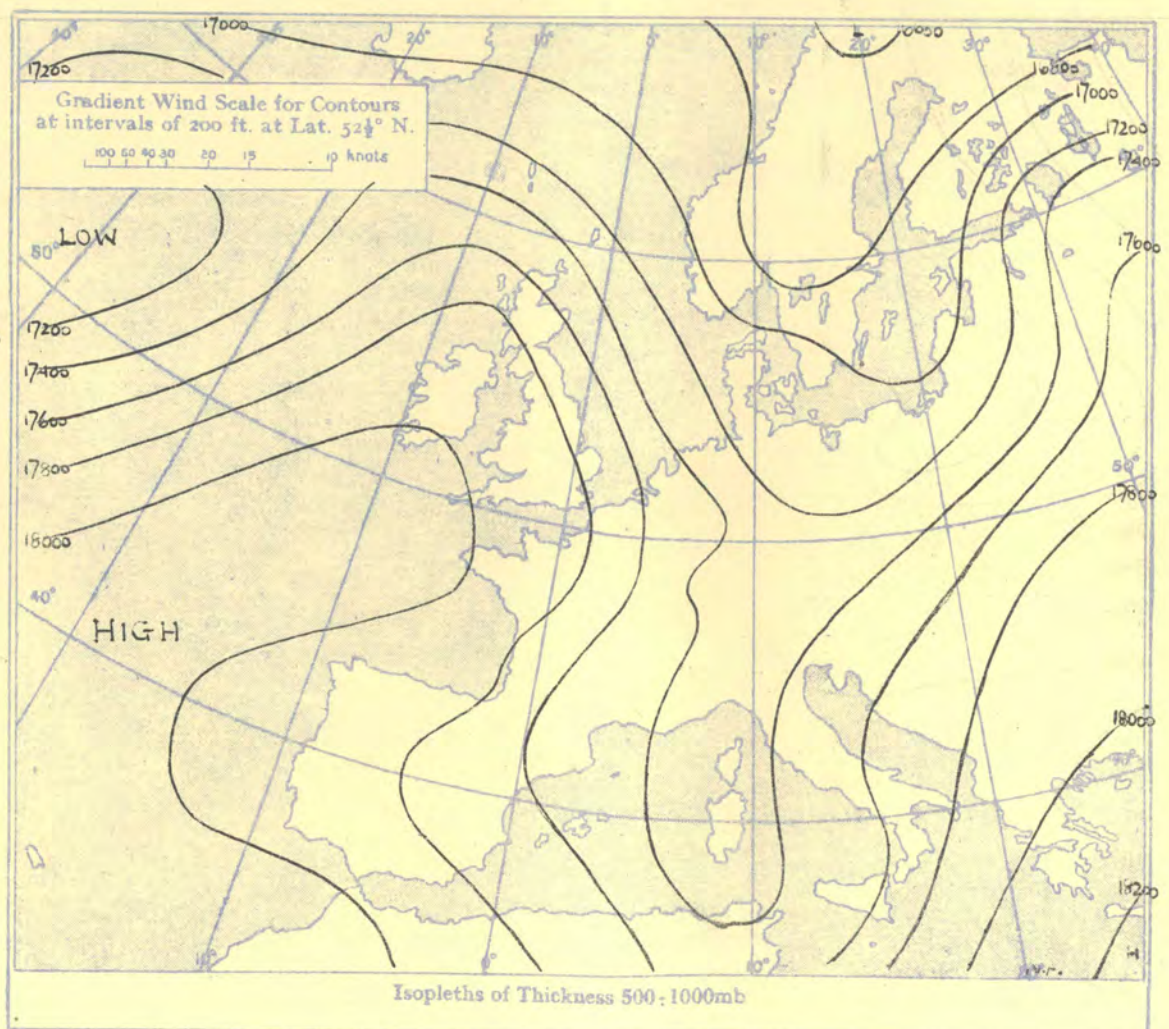 17000
20°
10°
0°
10°
20°
30°
17200
16800
17000
17200
17400
Gradient Wind Scale for Contours
at intervals of 200 ft. at Lat. 52½° N.
100 60 40 30 20 15 10 knots
LOW
50°
17600
17200
17400
17600
17800
50°
17800
18000
40°
HIGH
18000
40°
18200
H
10°
0°
10°
Isopleths of Thickness 500:1000mb